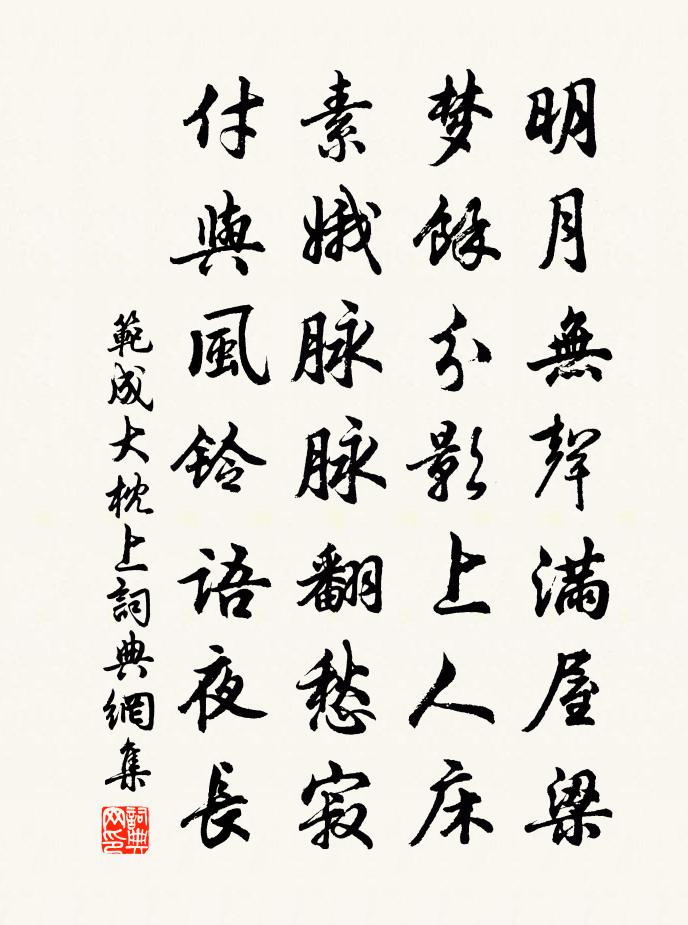 明月無聲滿屋梁
梦餘分影上人床
素娥脉脉翻愁寂
付與風鈴語夜長
範成大枕上詞典網集
詞典网印